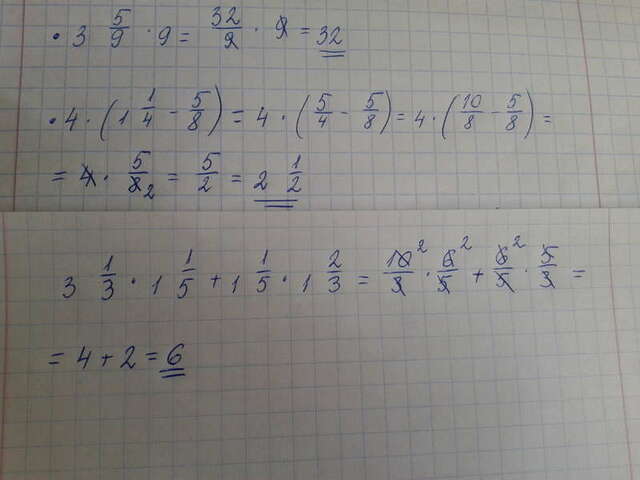 • 3 5/9 · 9 = 32/9 · 9 = 32
• 4 · (1 1/4 - 5/8) = 4 · (5/4 - 5/8) = 4 · (10/8 - 5/8) =
= 4 · 5/8 2 = 5/2 = 2 1/2
3 1/3 · 1 1/5 + 1 1/5 · 1 2/3 = 10 2/3 · 6 2/5 + 6 2/5 · 5/3 =
= 4 + 2 = 6